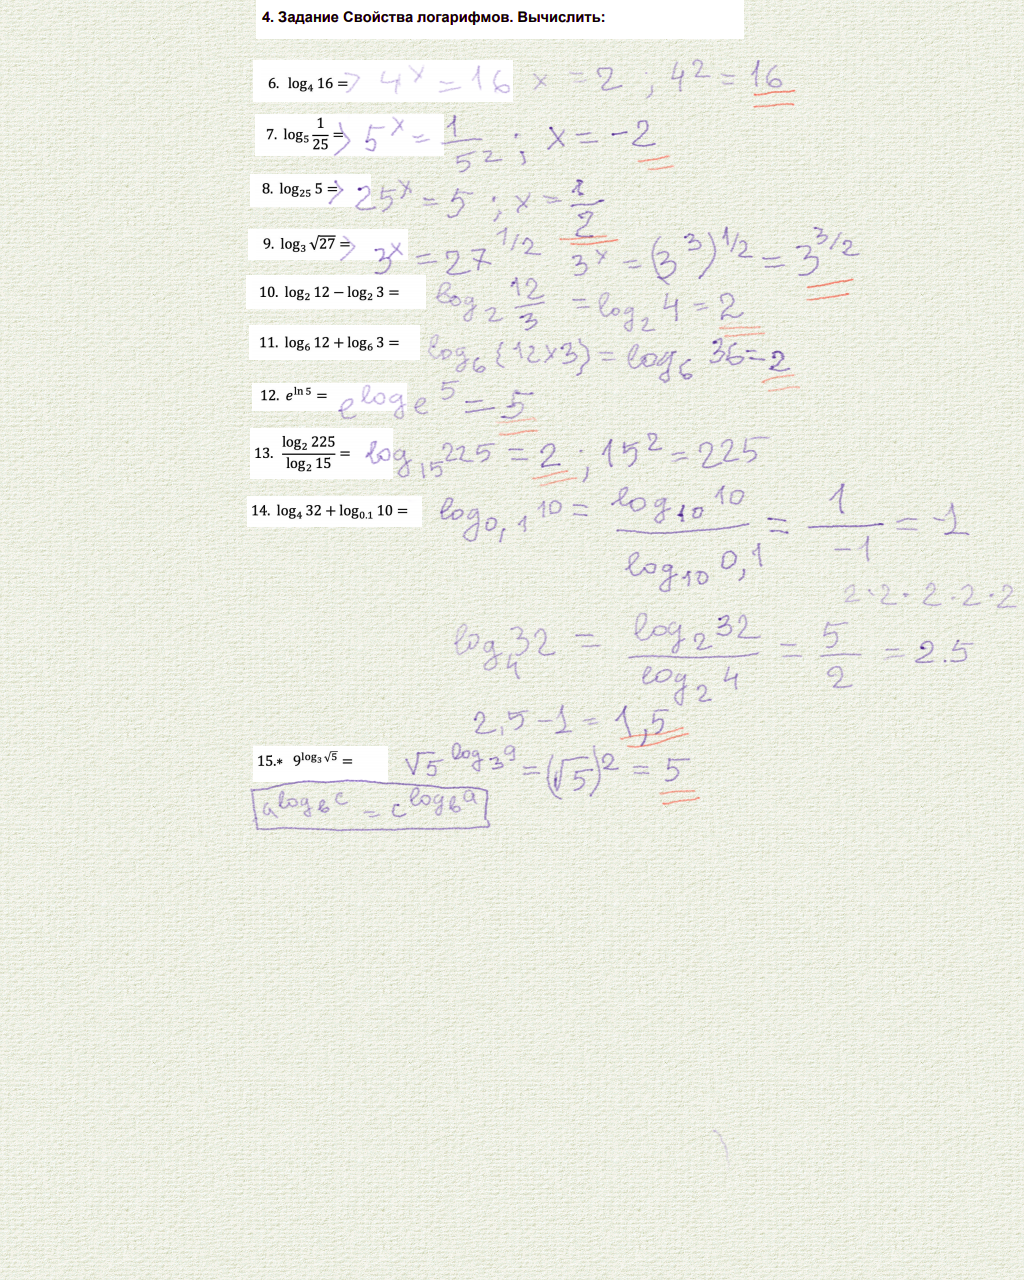 4. Задание Свойства логарифмов. Вычислить:
6. log₄ 16 = > 4ˣ = 16 x = 2 ; 4² = 16
7. log₅ 1/25 = > 5ˣ = 1/5² ; x = -2
8. log₂₅ 5 = > 25ˣ = 5 ; x = 1/2
9. log₃ √27 = > 3ˣ = 27^1/2 3ˣ = (3³)^1/2 = 3^3/2
10. log₂ 12 − log₂ 3 = log₂ 12/3 = log₂ 4 = 2
11. log₆ 12 + log₆ 3 = log₆ {12×3} = log₆ 36 = 2
12. e^ln 5 = e^log e 5 = 5
13. log₂ 225 / log₂ 15 = log₁₅ 225 = 2 ; 15² = 225
14. log₄ 32 + log₀.₁ 10 = log₀,₁ 10 = log₁₀ 10 / log₁₀ 0,1 = 1/-1 = -1
2·2·2·2·2
log₄ 32 = log₂ 32 / log₂ 4 = 5/2 = 2.5
2,5 - 1 = 1,5
15.* 9^log₃ √5 = √5^log₃ 9 = (√5)² = 5
a^log_b c = c^log_b a